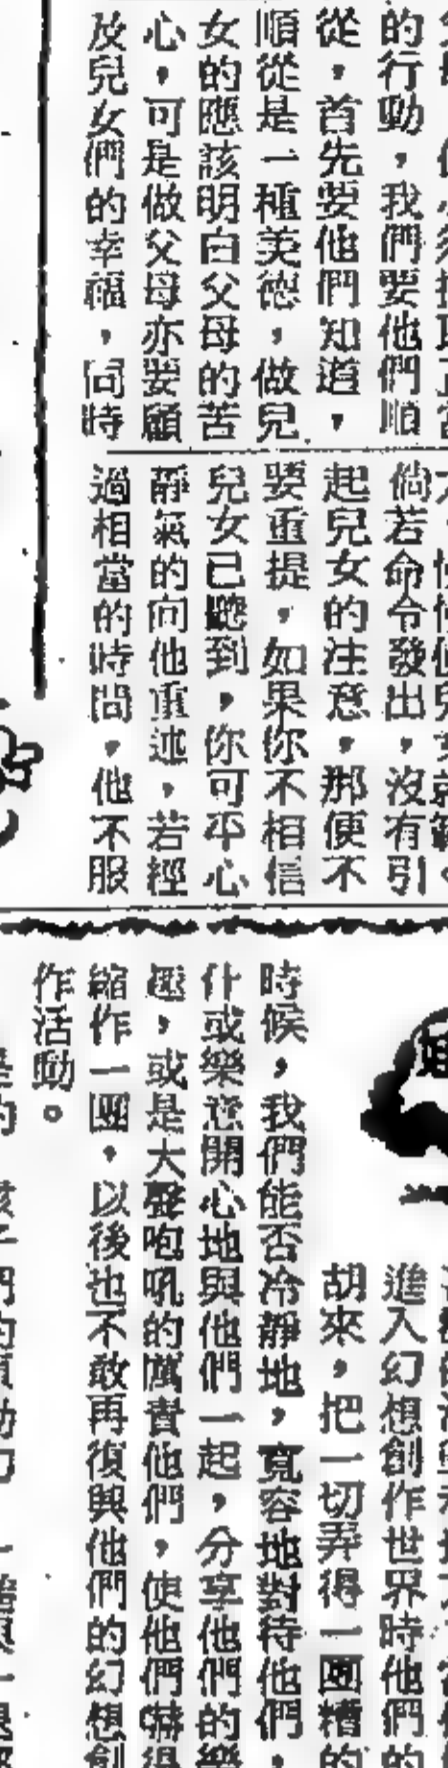 的行動，我們要他們順
從，首先要他們知道，
順從是一種美德，做兒
女的應該明白父母的苦
心，可是做父母亦要顧
及兒女們的幸福，同時
倘若命令發出，沒有引
起兒女的注意，那便不
要重提，如果你不相信
兒女已聽到，你可平心
靜氣的向他重述，若經
過相當的時間，他不服
進入幻想創作世界時他們的
胡來，把一切弄得一團糟的
時候，我們能否冷靜地，寬容地對待他們，
什或樂意開心地與他們一起，分享他們的樂
趣，或是大聲咆吼的厲責他們，使他們嚇得
縮作一團，以後也不敢再復興他們的幻想創
作活動。